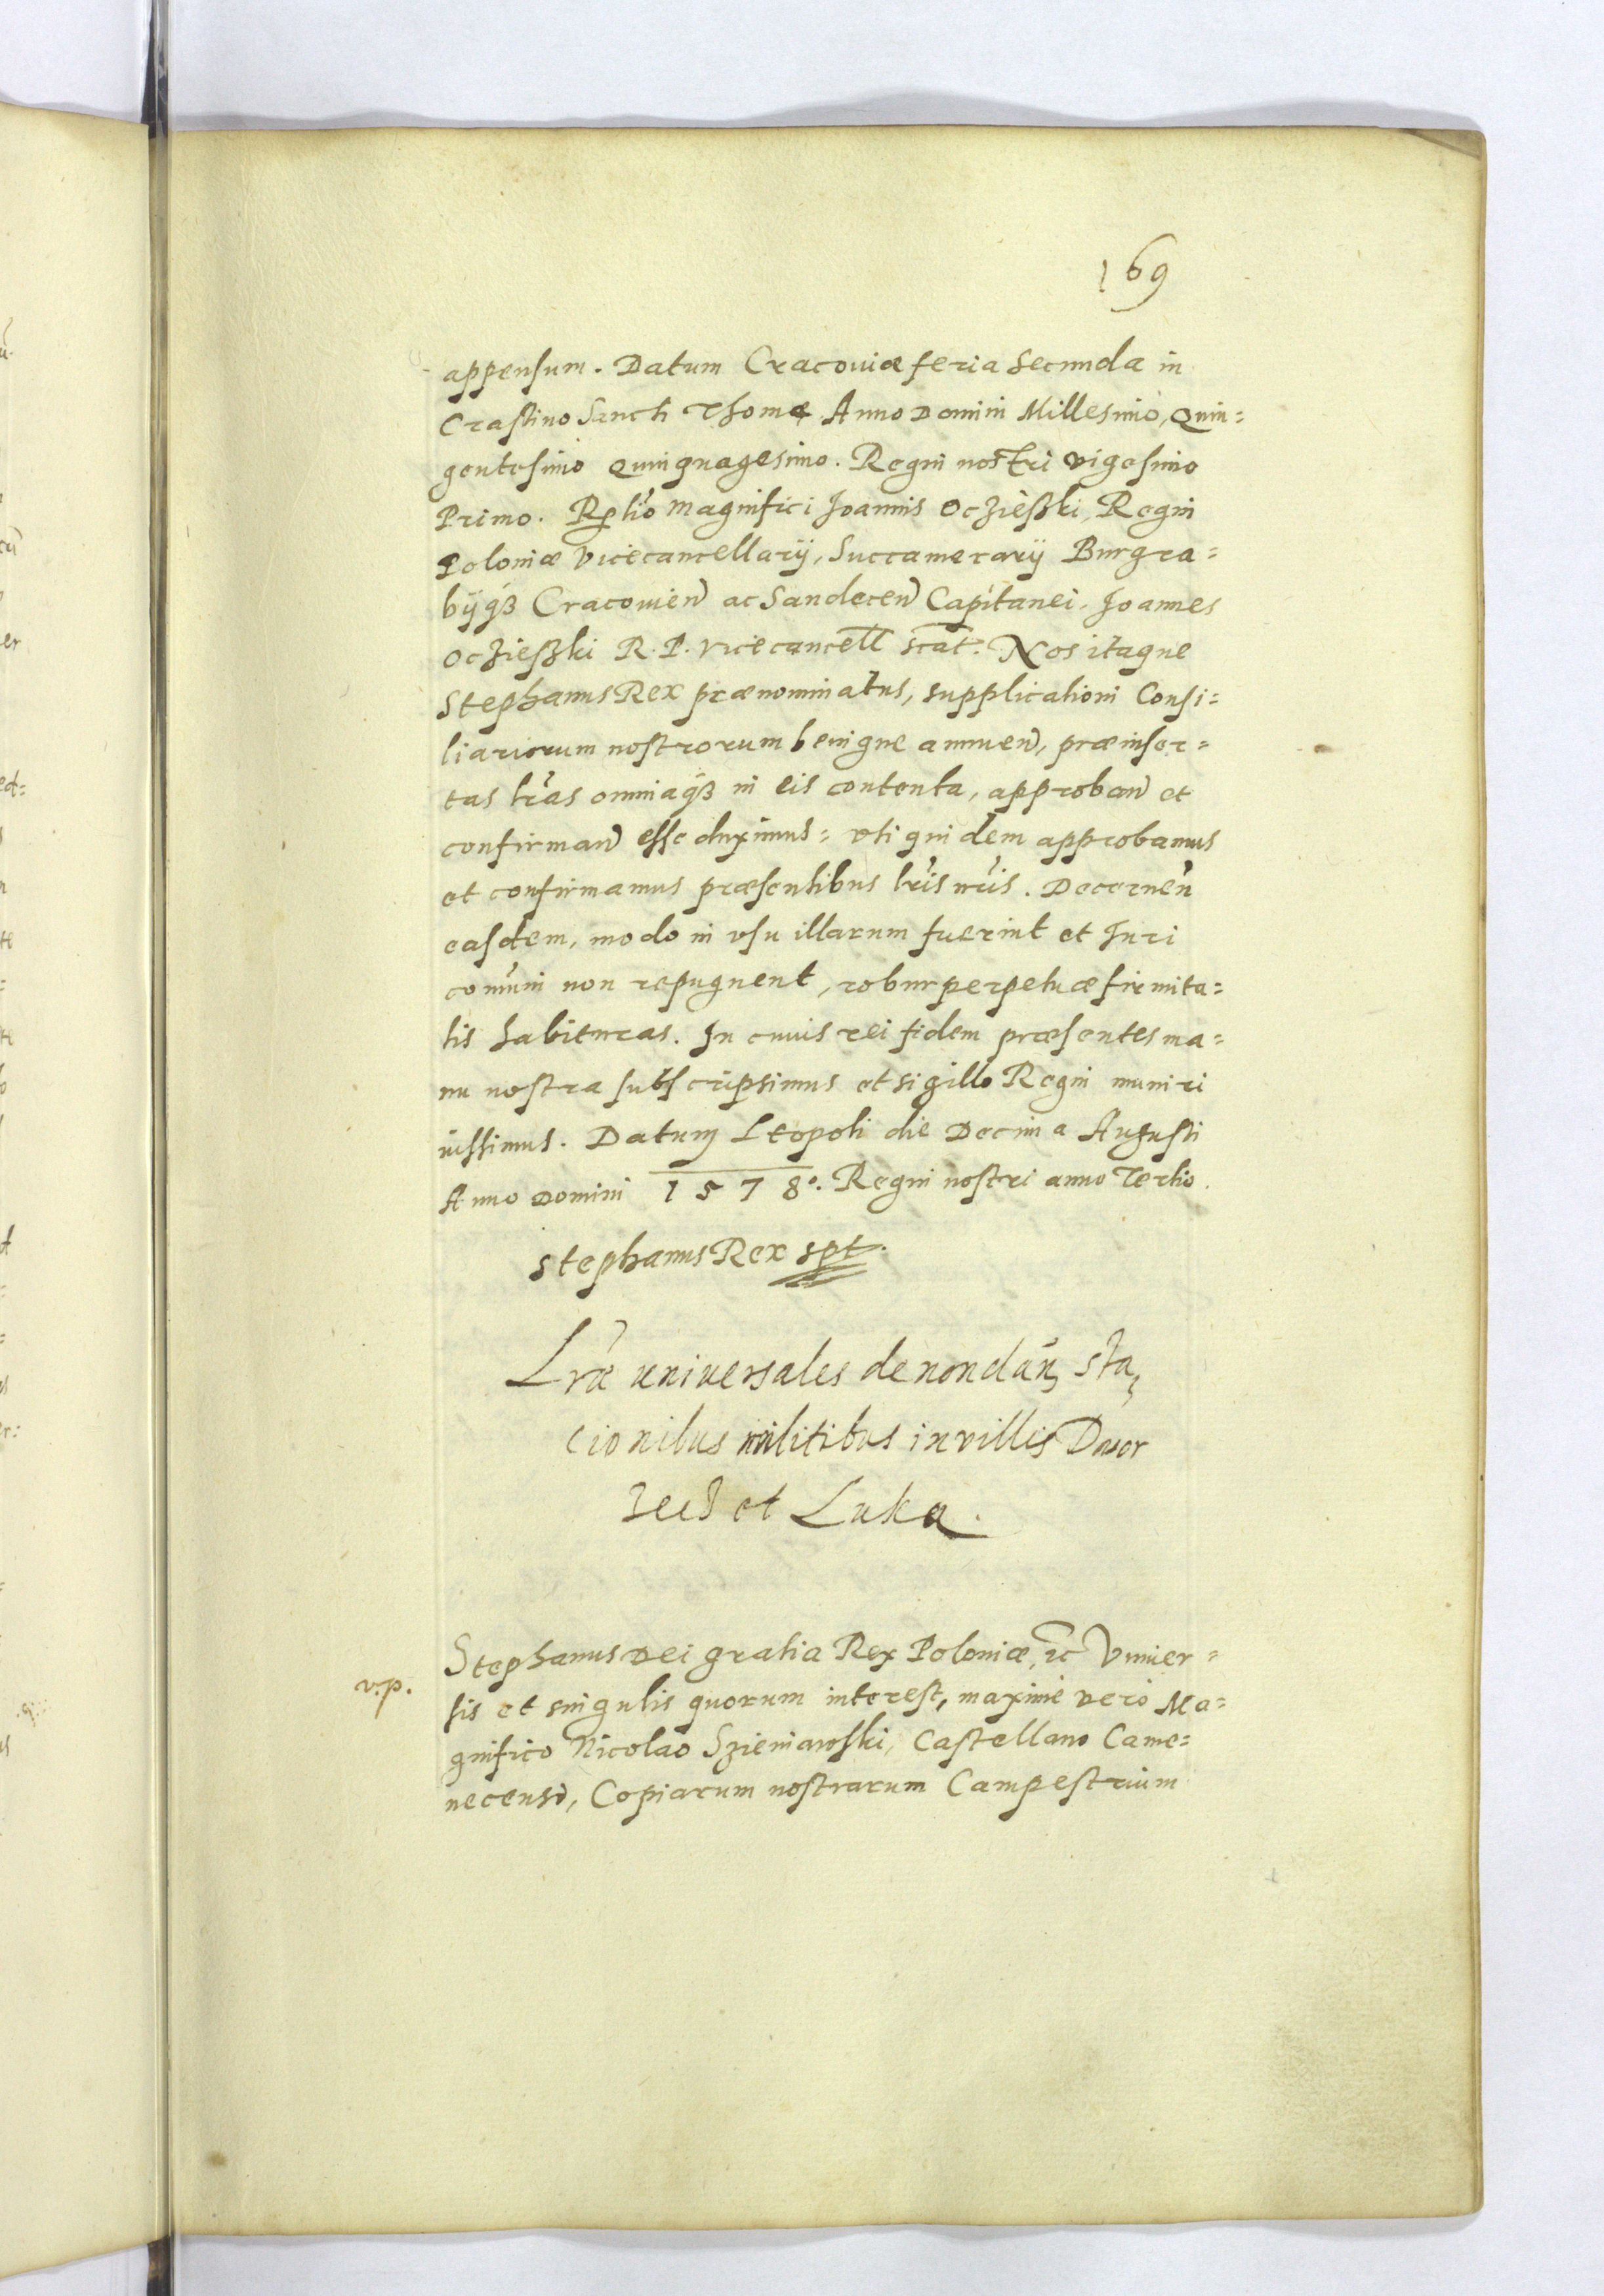 169
appensum. Datum Cracouiæ feria Secunda in
Crastino Sancti Thomę Anno Domini Millesimo, Quin=
gentesimo Quinquagesimo. Regni nostri vigesimo
Primo. Rꝑtio Magnifici Joannis Ocziesski, Regni
Poloniæ Vicecancellarij, Succamerarij Burgra=
bijqꝫ Cracouien̄ ac Sandecen̄ Capitanei. Joannes
Ocziesski R. P. Vicecancell scat. Nos itaque
Stephanus Rex prænominatus, supplicationi Consi=
liariorum nostrorum benigne annuen̄, præinser=
tas lr̃as omniaqꝫ in eis contenta, approban̄ et
confirman̄ esse duximus= vti quidem approbamus
et confirmamus præsentibus lr̃is nr̃is. Decernen̄
easdem, modo in vsu illarum fuerint et Juri
com̃uni non repugnent, robur perpetuæ firmita=
tis habituras. In cuius rei fidem præsentes ma=
nu nostra subscripsimus et sigillo Regni muniri
iussimus. Datum Leopoli die Decima Augusti
Anno Domini 1578°. Regni nostri anno Tertio.
Stephanus Rex spt.
Lræ universales de non dan̄ sta,
cionibus militibus in villis Dwor
zecz et Luka.
Stephanus Dei gratia Rex Poloniæ, ꝛc Vniuer=
v.p.
sis et singulis quorum interest, maxime vero Ma=
gnifico Nicolao Szieniawski, Castellano Came=
necensi, Copiarum nostrarum Campestrium